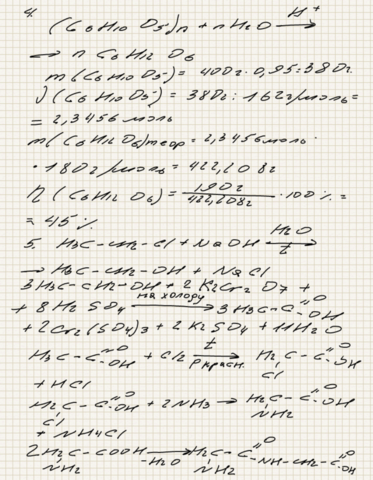 4.
(C6H10O5)n + nH2O H+ →
→ n C6H12O6
m(C6H10O5) = 400г · 0,95 = 380г.
ν(C6H10O5) = 380г : 162г/моль =
= 2,3456 моль
m(C6H12O6)теор = 2,3456моль ·
· 180г/моль = 422,208г
η(C6H12O6) = 190г / 422,208г · 100% =
= 45%
5. H3C-CH2-Cl + NaOH H2O → t
→ H3C-CH2-OH + NaCl
3H3C-CH2-OH + 2K2Cr2O7 +
+ 8H2SO4 на холоду → 3H3C-C=O -OH
+ 2Cr2(SO4)3 + 2K2SO4 + 11H2O
H3C-C=O -OH + Cl2 t → P красн. H2C-C=O -OH
Cl
+ HCl
H2C-C=O -OH + 2NH3 → H2C-C=O -OH
Cl NH2
+ NH4Cl
2H2C-COOH → -H2O H2C-C=O -NH-CH2-C=O -OH
NH2 NH2